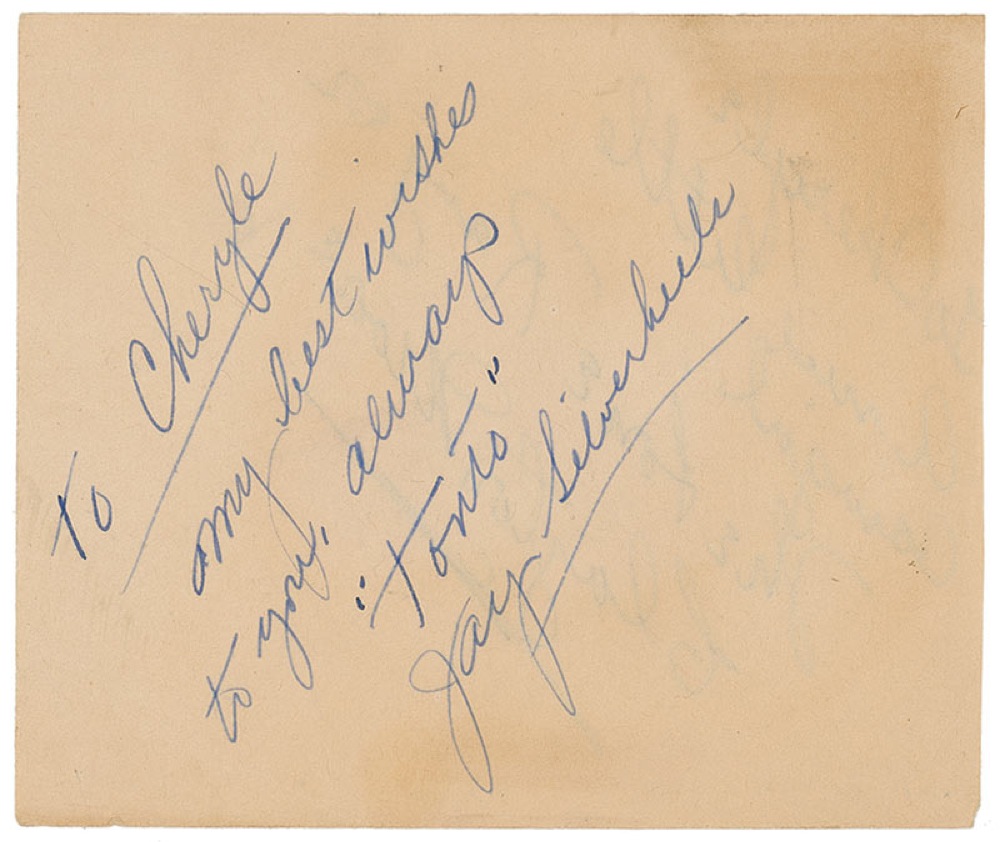 To Cheryle
my best wishes
to you, always
"Tonto"
Jay Silverheels